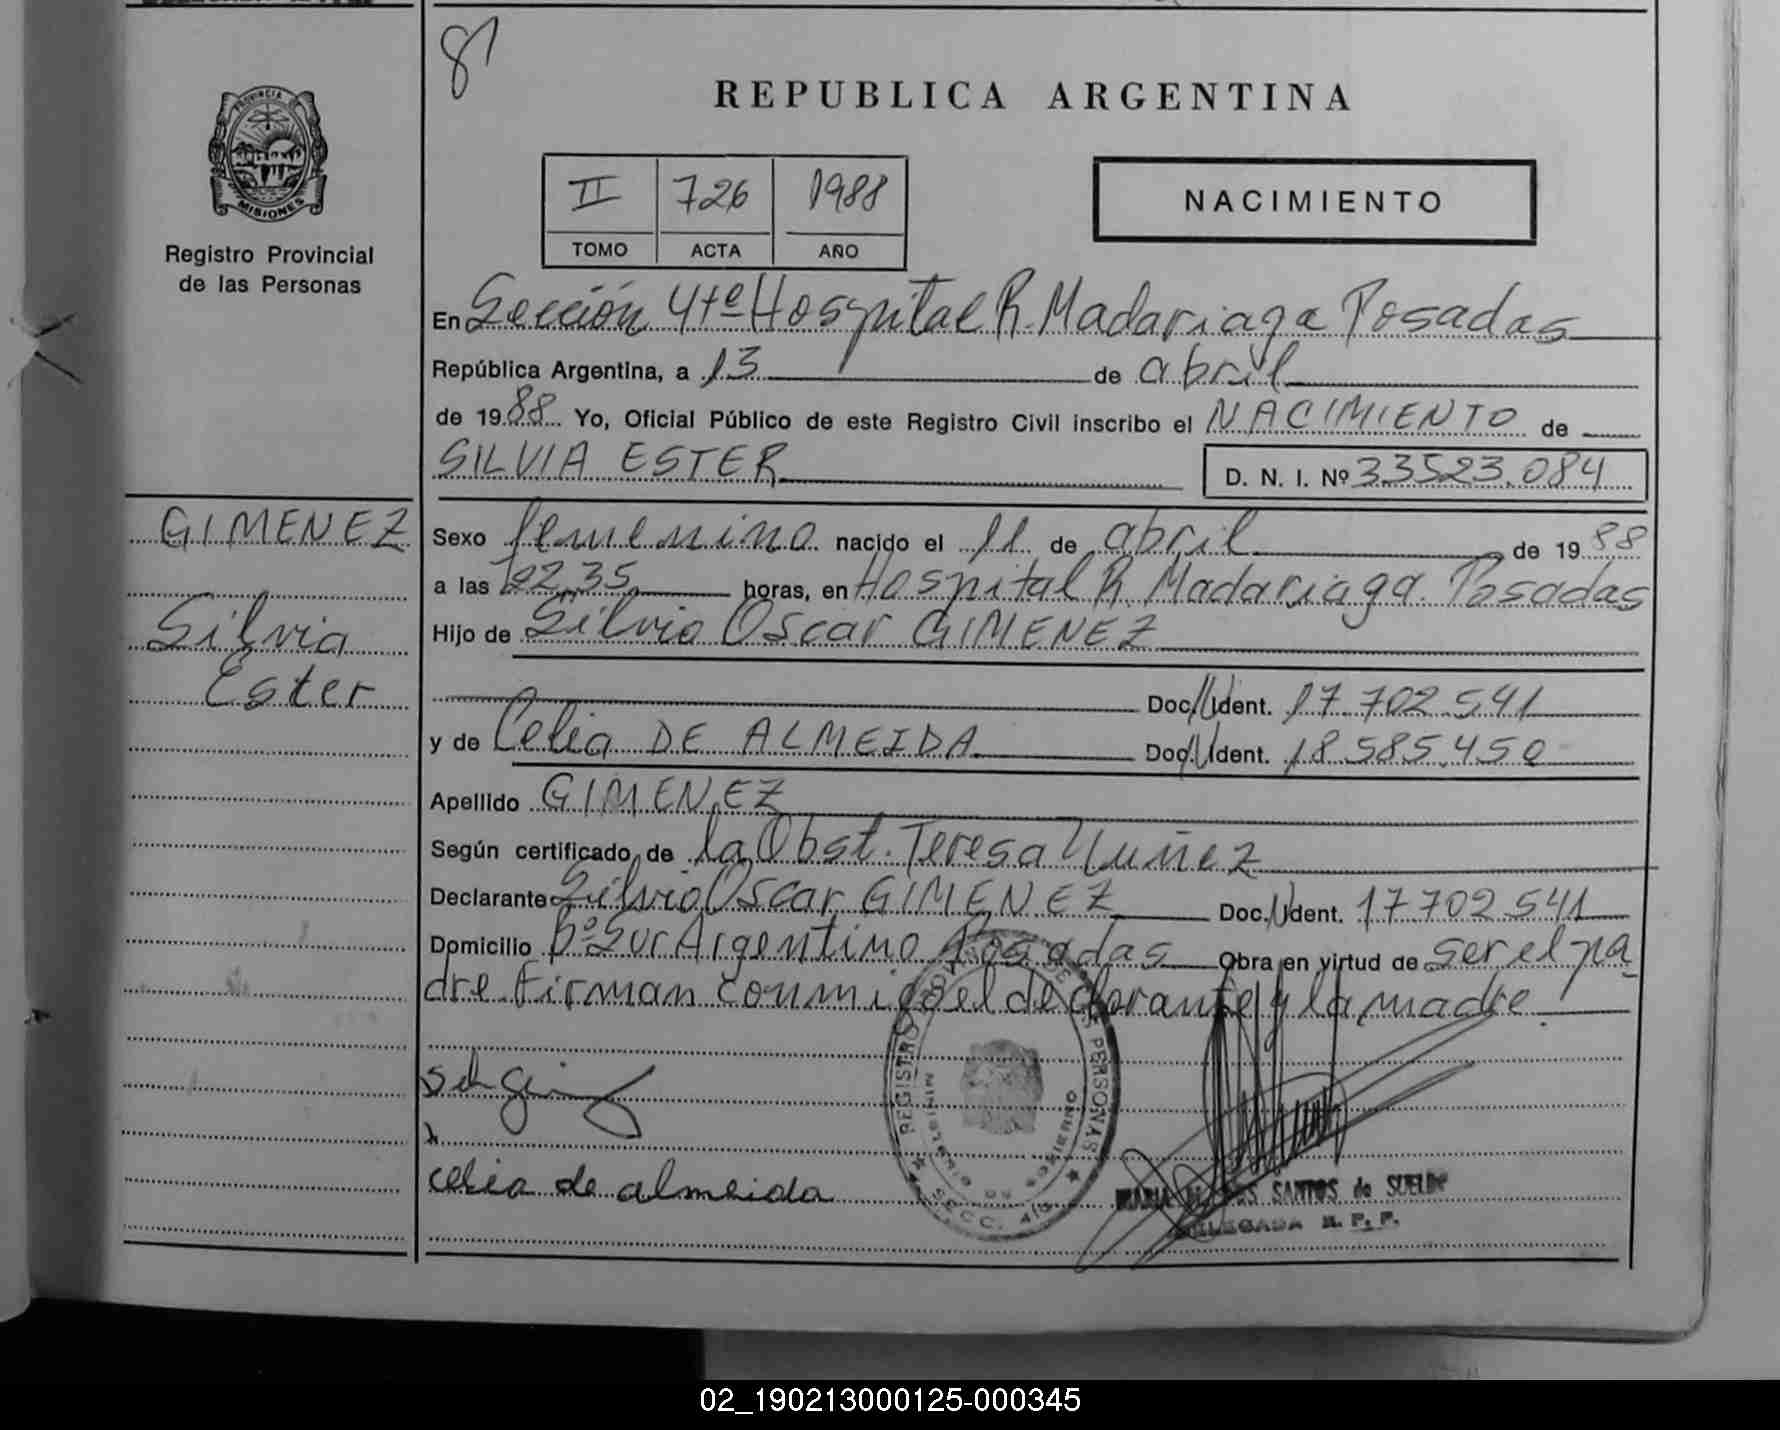 81
REPUBLICA ARGENTINA
PROVINCIA DE
MISIONES
Registro Provincial
de las Personas
II 726 1988
TOMO ACTA AÑO
NACIMIENTO
En Sección 4te Hospital R. Madariaga Posadas
República Argentina, a 13 de abril
de 1988 Yo, Oficial Público de este Registro Civil inscribo el NACIMIENTO de
SILVIA ESTER D. N. I. Nº 33523.084
GIMENEZ
Silvia
Ester
Sexo femenino nacido el 11 de abril de 1988
a las 22,35 horas, en Hospital R. Madariaga. Posadas
Hijo de Silvio Oscar GIMENEZ
Doc. Ident. 17.702.541
y de Celia DE ALMEIDA Doc. Ident. 18.585.450
Apellido GIMENEZ
Según certificado de la Obst. Teresa Nuñez
Declarante Silvio Oscar GIMENEZ Doc. Ident. 17702541
Domicilio Bº Sur Argentino Posadas Obra en virtud de ser el pa
dre. Firman conmigo el declarante y la madre.
celia de almeida
REGISTRO PROVINCIAL DE LAS PERSONAS
SECC. 4ta
SANTOS de SUELDO
DELEGADA R. P. P.
02_190213000125-000345